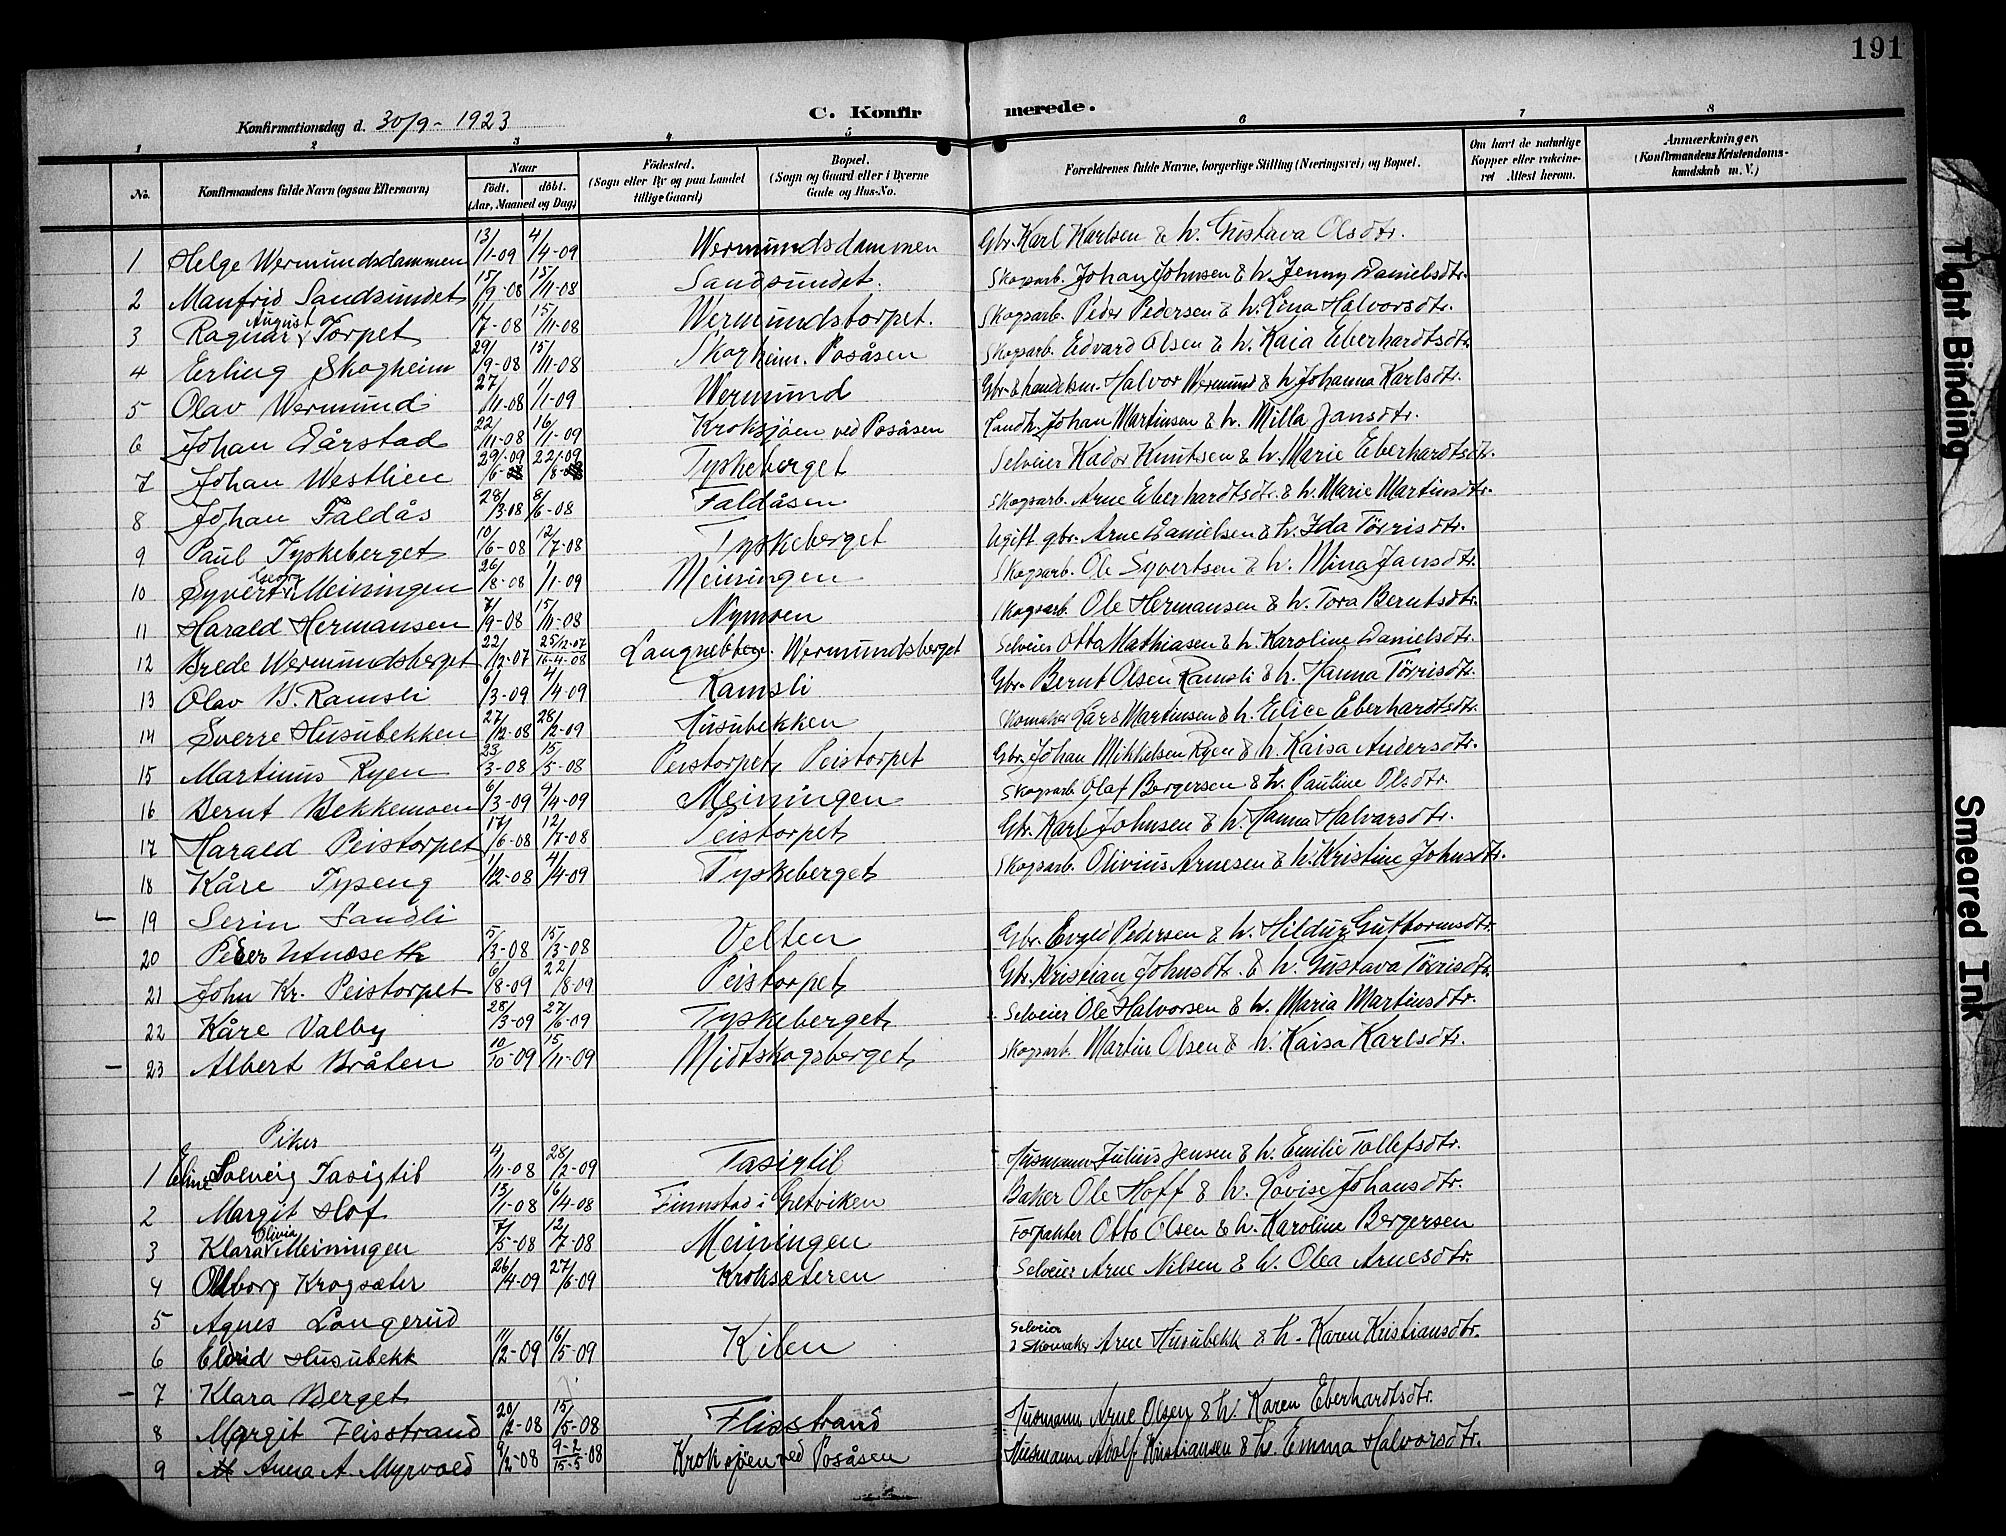 191
C. Konfirmerede.
Konfirmationsdag d. 30/9 - 1923
1 2 3 4 5 6 7 8
No. Konfirmandens fulde Navn (ogsaa Efternavn) Naar født. døbt. (Aar, Maaned og Dag) Fødested. (Sogn eller By og paa Landet tillige Gaard) Bopæl. (Sogn og Gaard eller i Byerne Gade og Hus-No. Forældrenes fulde Navne, borgerlige Stilling (Næringsvei) og Bopæl. Om havt de naturlige Kopper eller vakcineret Attest herom. Anmærkninger. (Konfirmandens Kristendomskundskab m. V.)
1 Helge Wermundsdammen 13/1-09 4/4-09 Wermundsdammen Gbr. Karl Karlsen & h. Gustava Olsdtr.
2 Manfrid Sandsundet 15/9-08 15/11-08 Sandsundet. Skogsarb. Johan Johnsen & h. Jenny Danielsdtr.
3 Ragnar August Torpet 11/7-08 15/11-08 Wermundstorpet. Skogsarb. Peder Pedersen & h. Lina Halvorsdtr.
4 Erling Skogheim 29/9-08 15/11-08 Skogheim. Posåsen Skogsarb. Edvard Olsen & h. Kaia Eberhardtsdtr.
5 Olav Wermund 27/11-08 1/1-09 Wermund Gbr. & handelsm. Halvor Wermund & h. Johanna Karlsdtr.
6 Johan Dårstad 22/11-08 16/1-09 Kroksjøen ved Posåsen Landh. Johan Martinsen & h. Milla Jansdtr.
7 Johan Westlien 29/6-09 22/8-09 Tyskeberget Selveier Kador Knutsen & h. Marie Eberhardtsdtr.
8 Johan Faldås 28/3-08 8/6-08 Faldåsen Skogsarb. Arne Eberhardtsdtr. & h. Marie Martinsdtr.
9 Paul Tyskeberget 10/6-08 12/7-08 Tyskeberget Ugift gbr. Arne Danielsen & h. Ida Törrisdtr.
10 Syvert Georg Meiningen 26/8-08 1/1-09 Meiningen Skogsarb. Ole Syvertsen & h. Mina Jansdtr.
11 Harald Hermansen 7/9-08 15/11-08 Nymoen Skogsarb. Ole Hermansen & h. Tora Berntsdtr.
12 Brede Wermundsberget 22/12-07 25/12-07 16-4-08 Wermundsberget Selveier Otto Mathiasen & h. Karoline Danielsdtr.
13 Olav B. Ramsli 6/3-09 4/4-09 Ramsli Gbr. Bernt Olsen Ramsli & h. Hanna Törrisdtr.
14 Sverre Husubekken 27/12-08 28/2-09 Husubekken Skomaker Lars Martinsen & h. Elice Eberhardtsdtr.
15 Martinus Ryen 23/3-08 15/5-08 Peistorpet, Peistorpet Gbr. Johan Mikkelsen Ryen & h. Kaisa Andersdtr.
16 Bernt Bekkemoen 6/3-09 4/4-09 Meiningen Skogsarb. Olaf Bergersen & h. Pauline Olsdtr.
17 Harald Peistorpet 17/6-08 12/7-08 Peistorpet Gbr. Karl Johnsen & h. Hanna Halvarsdtr.
18 Kåre Typeng 1/12-08 4/4-09 Tyskeberget Skogsarb. Olivius Arnesen & h. Kristine Johnsdtr.
19 Serin Sandli
20 Peder Unseth 5/3-08 15/3-08 Velten Gbr. Pedersen & h. Hildur Guttormsdtr.
21 John Kr. Peistorpet 6/8-09 22/8-09 Peistorpet Gbr. Kristian Johnsdtr. & h. Gustava Törrisdtr.
22 Kåre Valby 28/3-09 27/6-09 Tyskeberget Selveier Ole Halvorsen & h. Maria Martinsdtr.
23 Albert Bråten 10/10-09 15/11-09 Midtskogsberget Skogsarb. Martin Olsen & h. Kaisa Karlsdtr.
Piker
1 Eline Solveig Tasigtil 4/11-08 28/2-09 Tasigtil Husmann Julius Jensen & h. Emilie Tollefsdtr.
2 Margit Hof 13/1-08 16/4-08 Finnstad i Gretviken Baker Ole Hoff & h. Lovise Johansdtr.
3 Klara Olivia Meiningen 7/5-08 12/7-08 Meiningen Forpakter Otto Olsen & h. Karoline Bergersen
4 Olborg Krogsæter 26/4-09 27/6-09 Kroksæteren Selveier Arne Nilsen & h. Olea Arnesdtr.
5 Agnes Långerud
6 Eldrid Husubekk 11/2-09 16/5-09 Kilen Selveier & Skomaker Arne Husubekk & h. Karen Kristiansdtr.
7 Klara Berget
8 Margit Flisstrand 20/2-08 15/5-08 Flisstrand Husmann Arne Olsen & h. Karen Eberhardtsdtr.
9 Anna A. Myrvold 9/2-08 9-2 15-5-08 Kroksjøen ved Posåsen Husmann Adolf Kristiansen & h. Emma Halvorsdtr.
Tight Binding
Smeared Ink